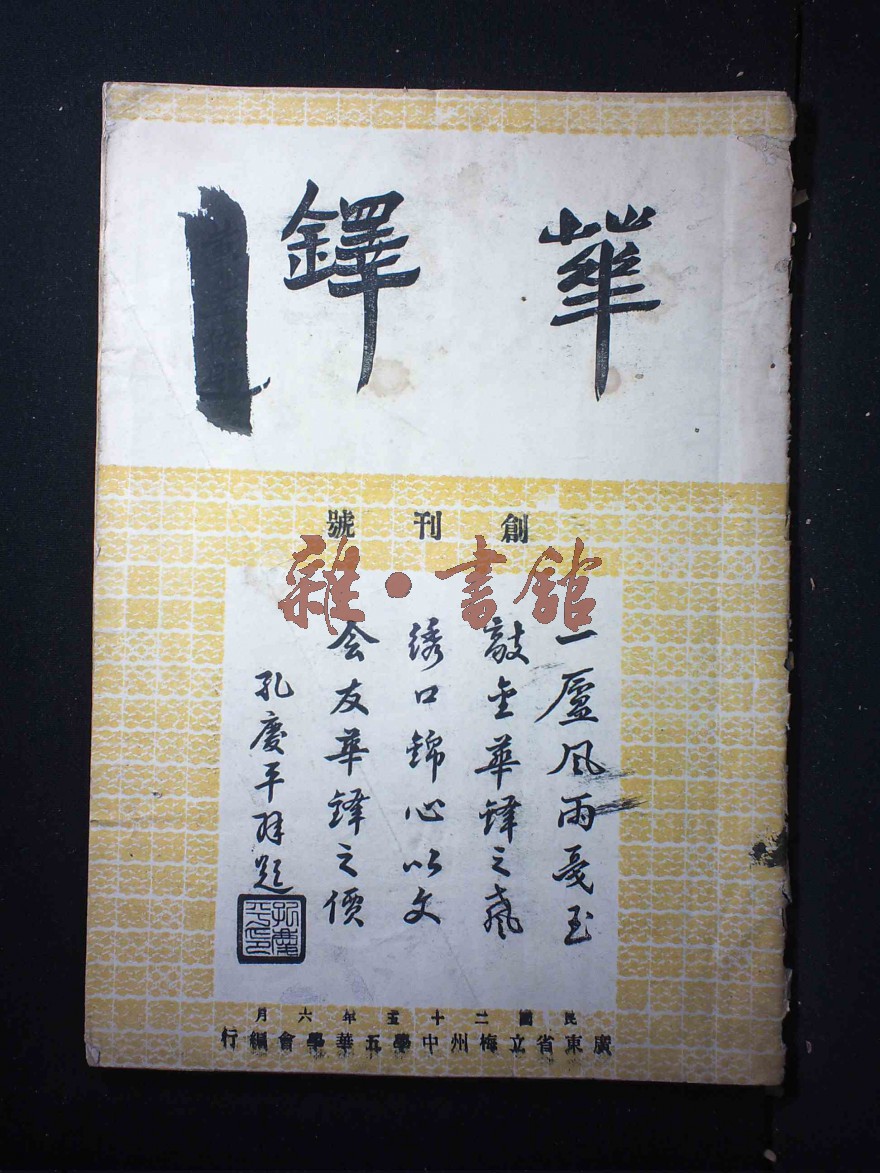 華鐸
創刊號
雜·書館
一廬风雨戛玉
敲金華鐸之聲
绣口錦心以文
会友華鐸之價
孔慶平拜題
孔慶平印
民國二十五年六月
廣東省立梅州中學五華學會編行